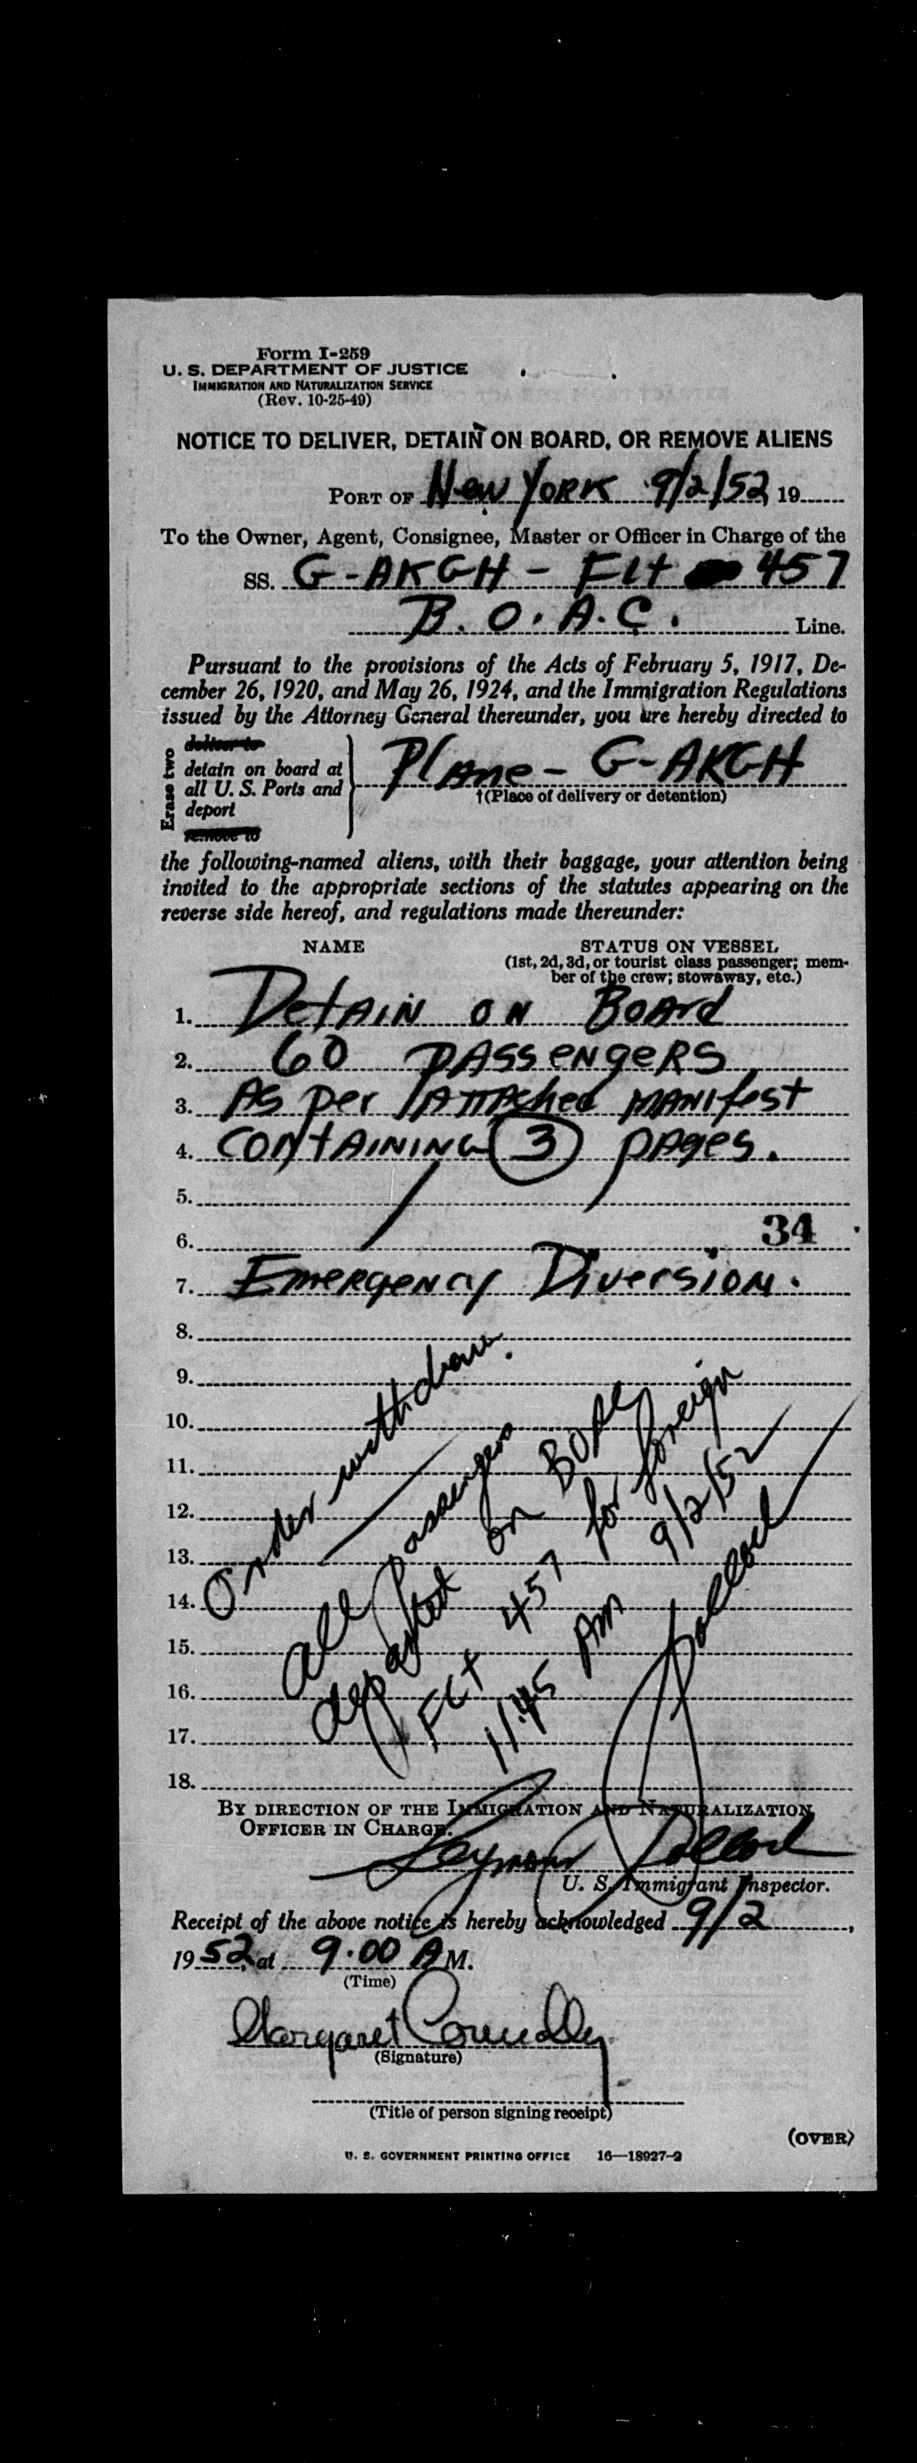 Form I-259
U. S. DEPARTMENT OF JUSTICE
IMMIGRATION AND NATURALIZATION SERVICE
(Rev. 10-25-49)
NOTICE TO DELIVER, DETAIN ON BOARD, OR REMOVE ALIENS
PORT OF New YORK 9/2/52, 19
To the Owner, Agent, Consignee, Master or Officer in Charge of the
SS. G-AKGH - Flt 457
B.O.A.C. Line.
Pursuant to the provisions of the Acts of February 5, 1917, De-
cember 26, 1920, and May 26, 1924, and the Immigration Regulations
issued by the Attorney General thereunder, you are hereby directed to
Erase two
deliver to
detain on board at
all U. S. Ports and
deport
remove to
Plane - G-AKGH
†(Place of delivery or detention)
the following-named aliens, with their baggage, your attention being
invited to the appropriate sections of the statutes appearing on the
reverse side hereof, and regulations made thereunder:
NAME STATUS ON VESSEL
(1st, 2d, 3d, or tourist class passenger; mem-
ber of the crew; stowaway, etc.)
1. Detain on Board
2. 60 PASSengeRS
3. As per Attached manifest
4. containing 3 pages.
5.
6. 34
7. Emergency Diversion.
8.
9.
10.
11.
12.
13.
14.
15.
16.
17.
18.
Order withdrawn.
All passengers
departed on BOAC
Flt 457 for foreign
11:45 AM 9/2/52
Pollock
BY DIRECTION OF THE IMMIGRATION AND NATURALIZATION
OFFICER IN CHARGE.
Seymour Pollock
U. S. Immigrant Inspector.
Receipt of the above notice is hereby acknowledged 9/2,
1952, at 9:00 AM.
(Time)
Margaret Connolly
(Signature)
(Title of person signing receipt)
(OVER)
U. S. GOVERNMENT PRINTING OFFICE 16—18927-2